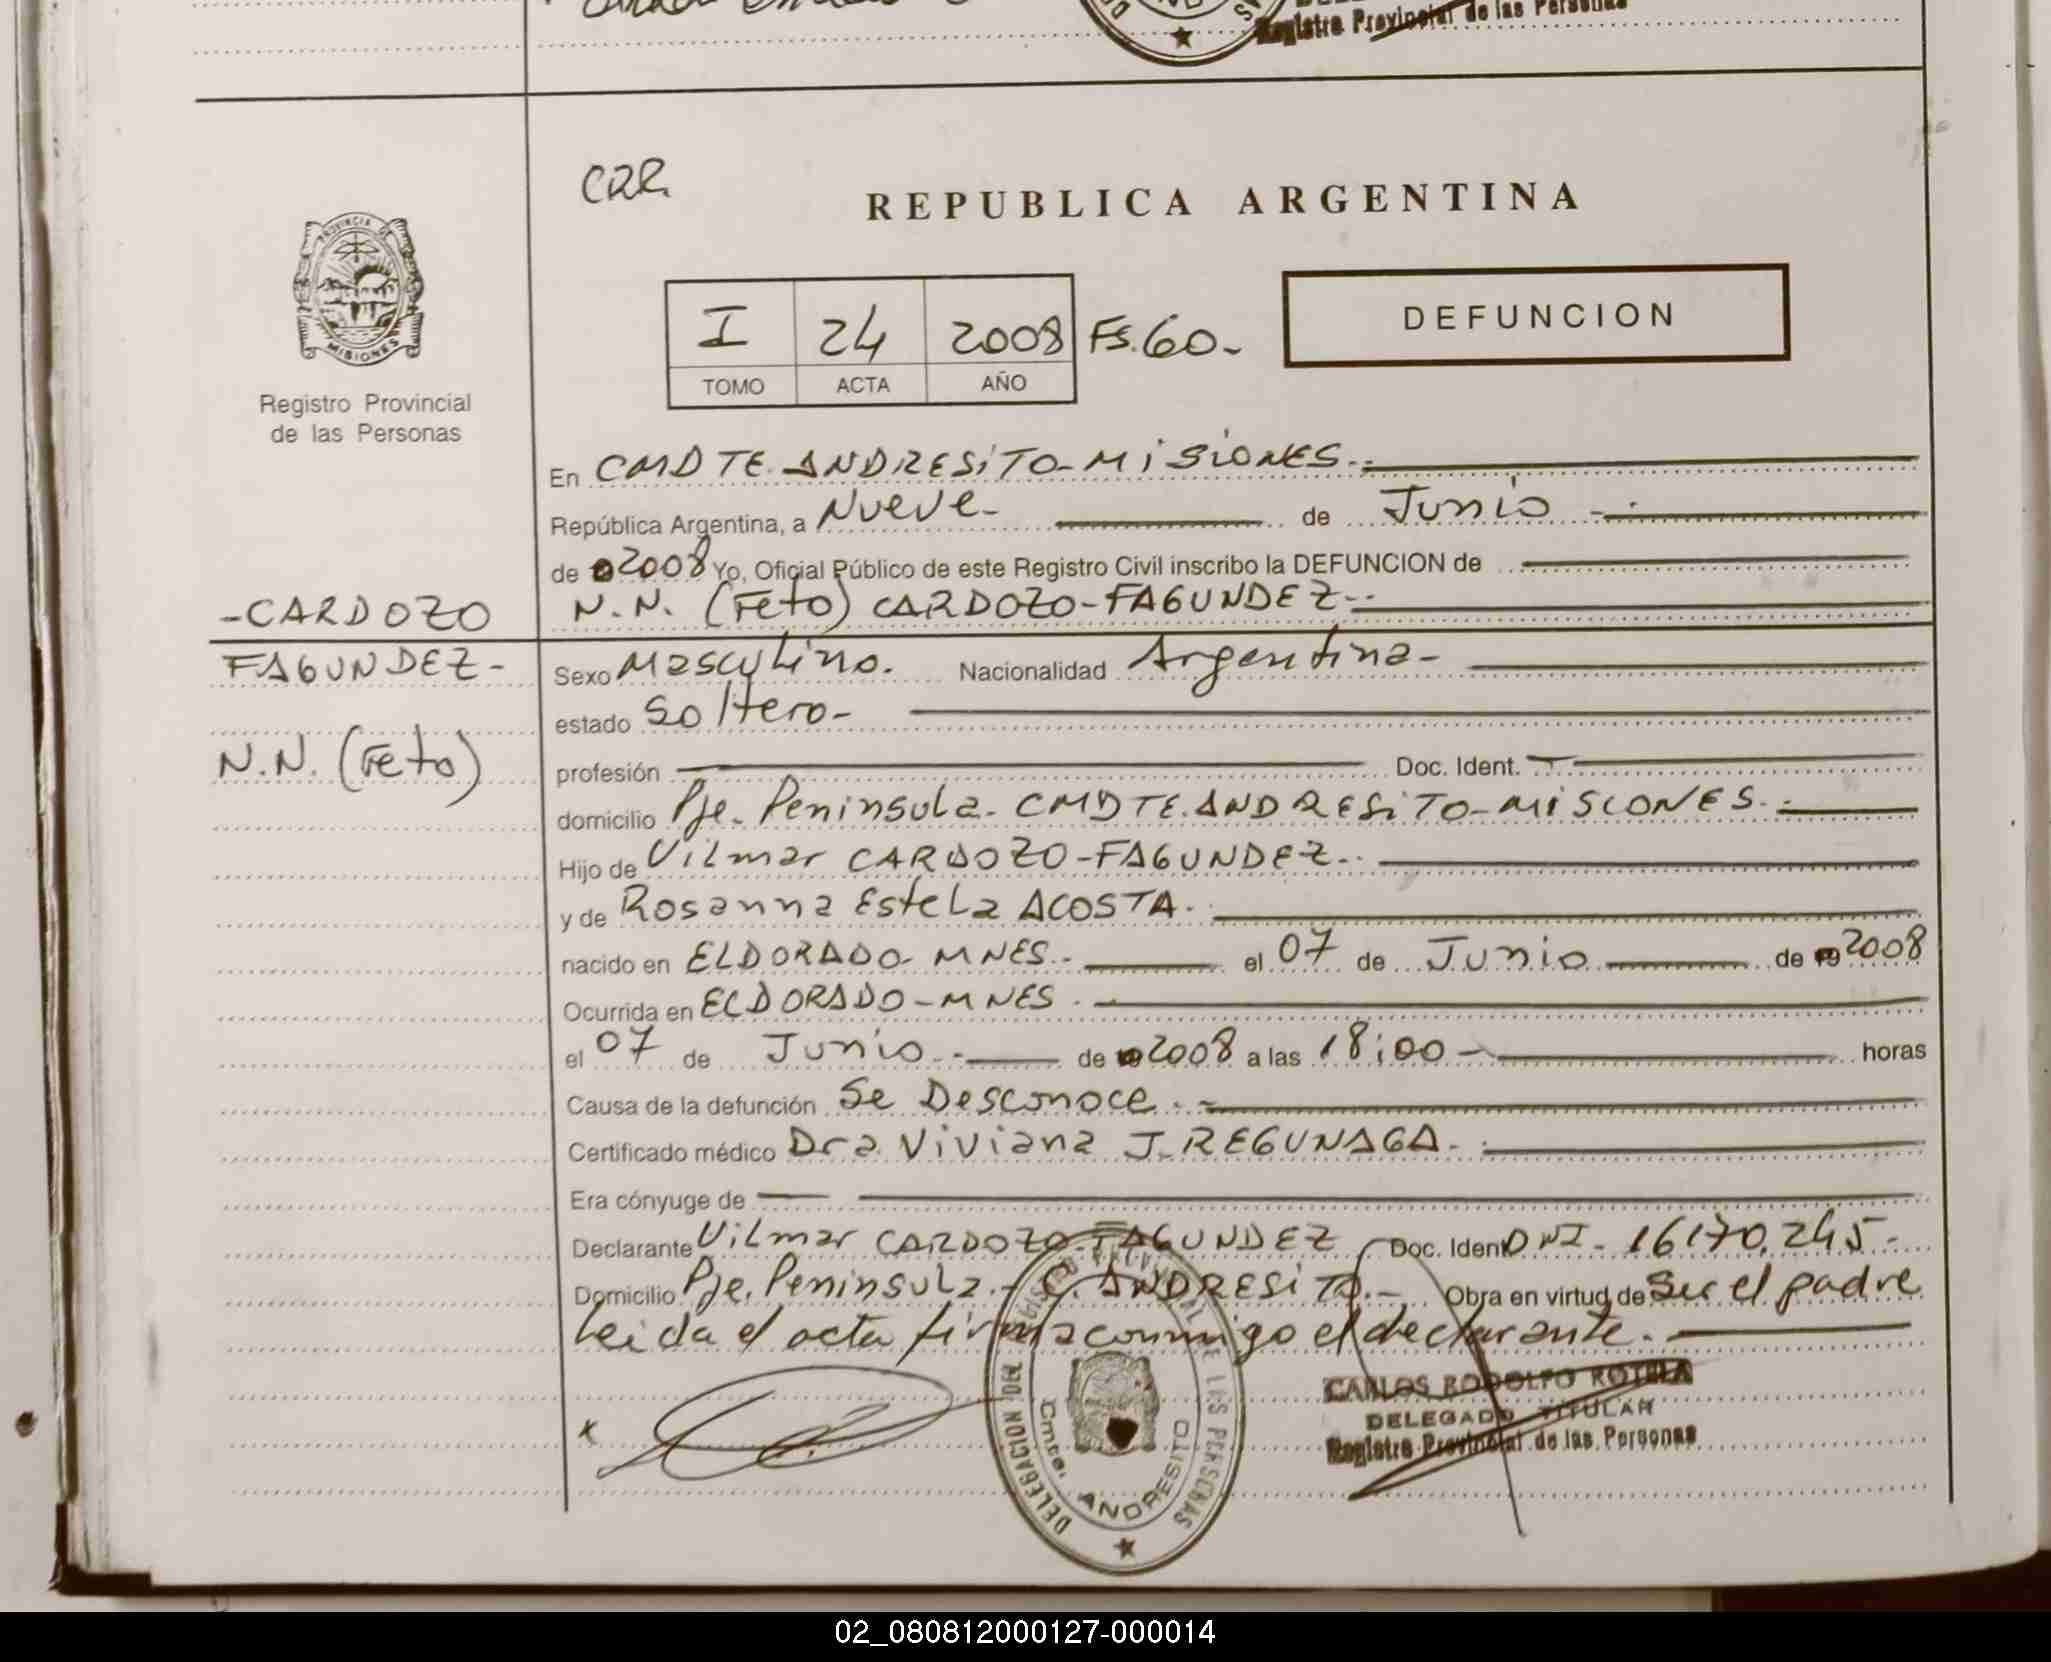 Registro Provincial de las Personas
CRR
REPUBLICA ARGENTINA
PROVINCIA DE
MISIONES
Registro Provincial
de las Personas
I 24 2008 Fs. 60.-
TOMO ACTA AÑO
DEFUNCION
En CMDTE. ANDRESITO - MISIONES.-
República Argentina, a Nueve - de Junio -.
de 2008 Yo, Oficial Público de este Registro Civil inscribo la DEFUNCION de
N.N. (Feto) CARDOZO - FAGUNDEZ -.
- CARDOZO
FAGUNDEZ -
N.N. (Feto)
Sexo Masculino. Nacionalidad Argentina -
estado Soltero -
profesión Doc. Ident.
domicilio Pje. Peninsula - CMDTE. ANDRESITO - MISIONES.-
Hijo de Vilmar CARDOZO - FAGUNDEZ -.
y de Rosanna Estela ACOSTA.
nacido en ELDORADO - MNES.- el 07 de Junio de 2008
Ocurrida en ELDORADO - MNES.
el 07 de Junio.- de 2008 a las 18:00 - horas
Causa de la defunción Se Desconoce.-
Certificado médico Dra Viviana J. REGUNAGA.-
Era cónyuge de
Declarante Vilmar CARDOZO - FAGUNDEZ Doc. Ident DNI - 16170.245 -
Domicilio Pje. Peninsula - C. ANDRESITO.- Obra en virtud de ser el padre
Leida el acta firma conmigo el declarante.
x
DELEGACION DEL REGISTRO PROVINCIAL DE LAS PERSONAS
Cmte. ANDRESITO
CARLOS RODOLFO ROTELA
DELEGADO TITULAR
Registro Provincial de las Personas
02_080812000127-000014